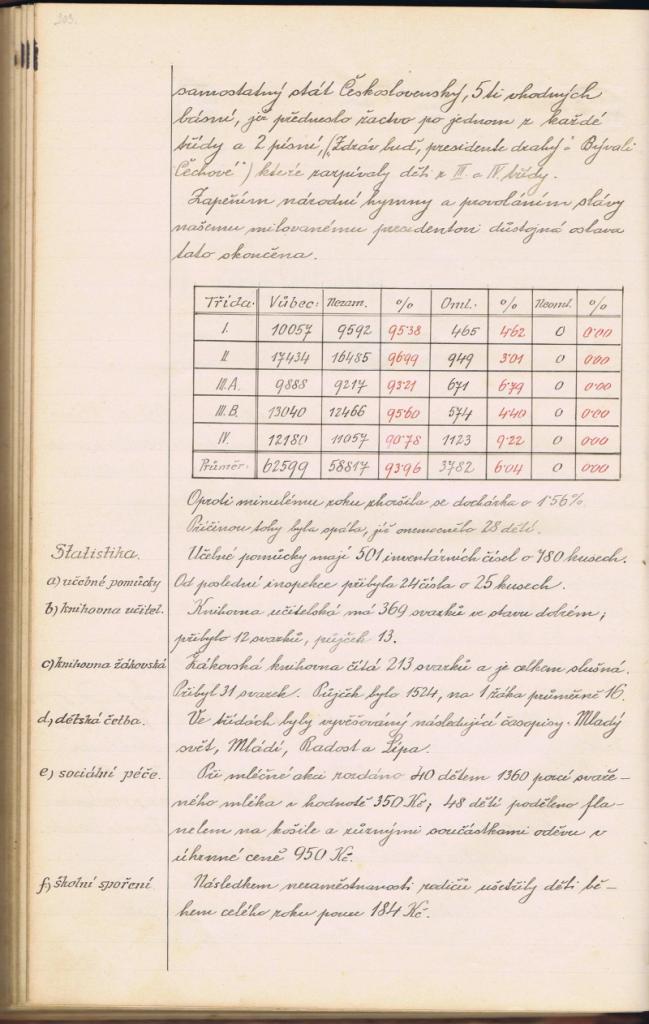 203.
samostatný stát Československý, 5 ti vhodných
básní, jež předneslo žactvo po jednom z každé
třídy a 2 písní, („Zdráv buď, presidente drahý“ a „Bývali
Čechové“) které zazpívaly děti z III. a IV. třídy.
Zapěním národní hymny a provoláním slávy
našemu milovanému presidentovi důstojná oslava
tato skončena.
Třída. Vůbec: Nezam. % Oml. % Neoml. %
I. 10057 9592 95·38 465 4·62 0 0·00
II. 17434 16485 96·99 949 3·01 0 0·00
III.A. 9888 9217 93·21 671 6·79 0 0·00
III.B. 13040 12466 95·60 574 4·40 0 0·00
IV. 12180 11057 90·78 1123 9·22 0 0·00
Průměr: 62599 58817 93·96 3782 6·04 0 0·00
Oproti minulému roku zhoršila se docházka o 1·56%.
Příčinou toho byla spála, jíž onemocnělo 28 dětí.
Statistika.
Učebné pomůcky mají 501 inventárních čísel o 780 kusech.
a) učebné pomůcky
Od poslední inspekce přibyla 24 čísla o 25 kusech.
b) knihovna učitel.
Knihovna učitelská má 369 svazků ve stavu dobrém;
přibylo 12 svazků, půjček 13.
c) knihovna žákovská
Žákovská knihovna čítá 213 svazků a je celkem slušná.
Přibyl 31 svazek. Půjček bylo 1524, na 1 žáka průměrně 16.
d) dětská četba.
Ve třídách byly vyvěšovány následující časopisy: Mladý
svět, Mládí, Radost a Lípa.
e) sociální péče.
Při mléčné akci rozdáno 40 dětem 1360 porcí svaře-
ného mléka v hodnotě 350 Kč; 48 dětí poděleno fla-
nelem na košile a různými součástkami oděvu v
úhrnné ceně 950 Kč.
f) školní spoření
Následkem nezaměstnanosti rodičů ušetřily děti bě-
hem celého roku pouze 184 Kč.